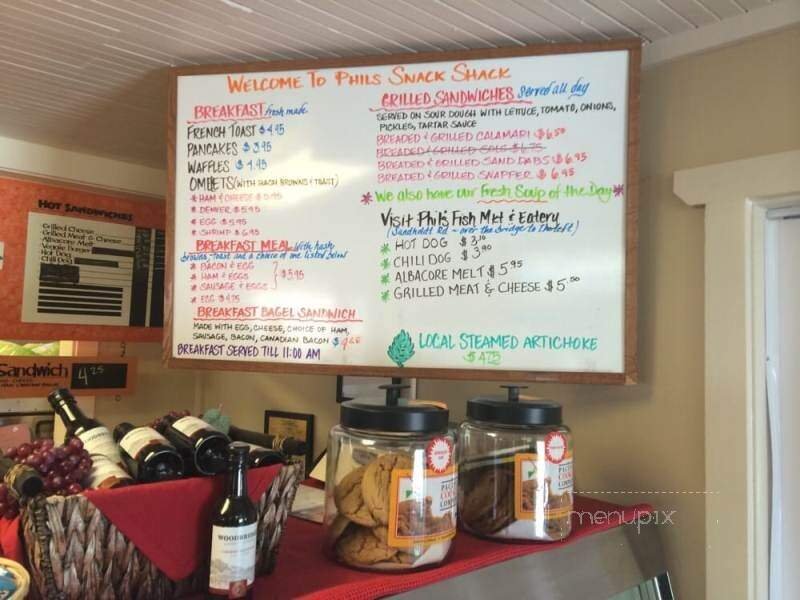 WELCOME TO PHILS SNACK SHACK
BREAKFAST fresh made
FRENCH TOAST $4.95
PANCAKES $3.95
WAFFLES $4.95
OMLETS (WITH HASH BROWNS & TOAST)
* HAM & CHEESE $5.95
* DENVER $5.95
* EGG $5.95
* SHRIMP $6.95
BREAKFAST MEAL with hash
browns, toast and a choice of one listed below
* BACON & EGG
* HAM & EGGS } $5.95
* SAUSAGE & EGGS
* EGG $4.75
BREAKFAST BAGEL SANDWICH
MADE WITH EGG, CHEESE, CHOICE OF HAM,
SAUSAGE, BACON, CANADIAN BACON
BREAKFAST SERVED TILL 11:00 AM
GRILLED SANDWICHES Served all day
SERVED ON SOUR DOUGH WITH LETTUCE, TOMATO, ONIONS,
PICKLES, TARTAR SAUCE
BREADED & GRILLED CALAMARI $6.50
BREADED & GRILLED SOLE $6.75
BREADED & GRILLED SAND DABS $6.95
BREADED & GRILLED SNAPPER $6.95
* We also have our Fresh Soup of the Day *
Visit Phil's Fish Mkt & Eatery
(Sandholdt Rd - over the bridge to the left)
* HOT DOG $3.10
* CHILI DOG $3.90
* ALBACORE MELT $5.95
* GRILLED MEAT & CHEESE $5.50
LOCAL STEAMED ARTICHOKE
$4.75
HOT SANDWICHES
Grilled Cheese
Grilled Meat & Cheese
Albacore Melt
Veggie Burger
Hot Dog
Chili Dog
Sandwich 4.25
WOODBRIDGE
menupix